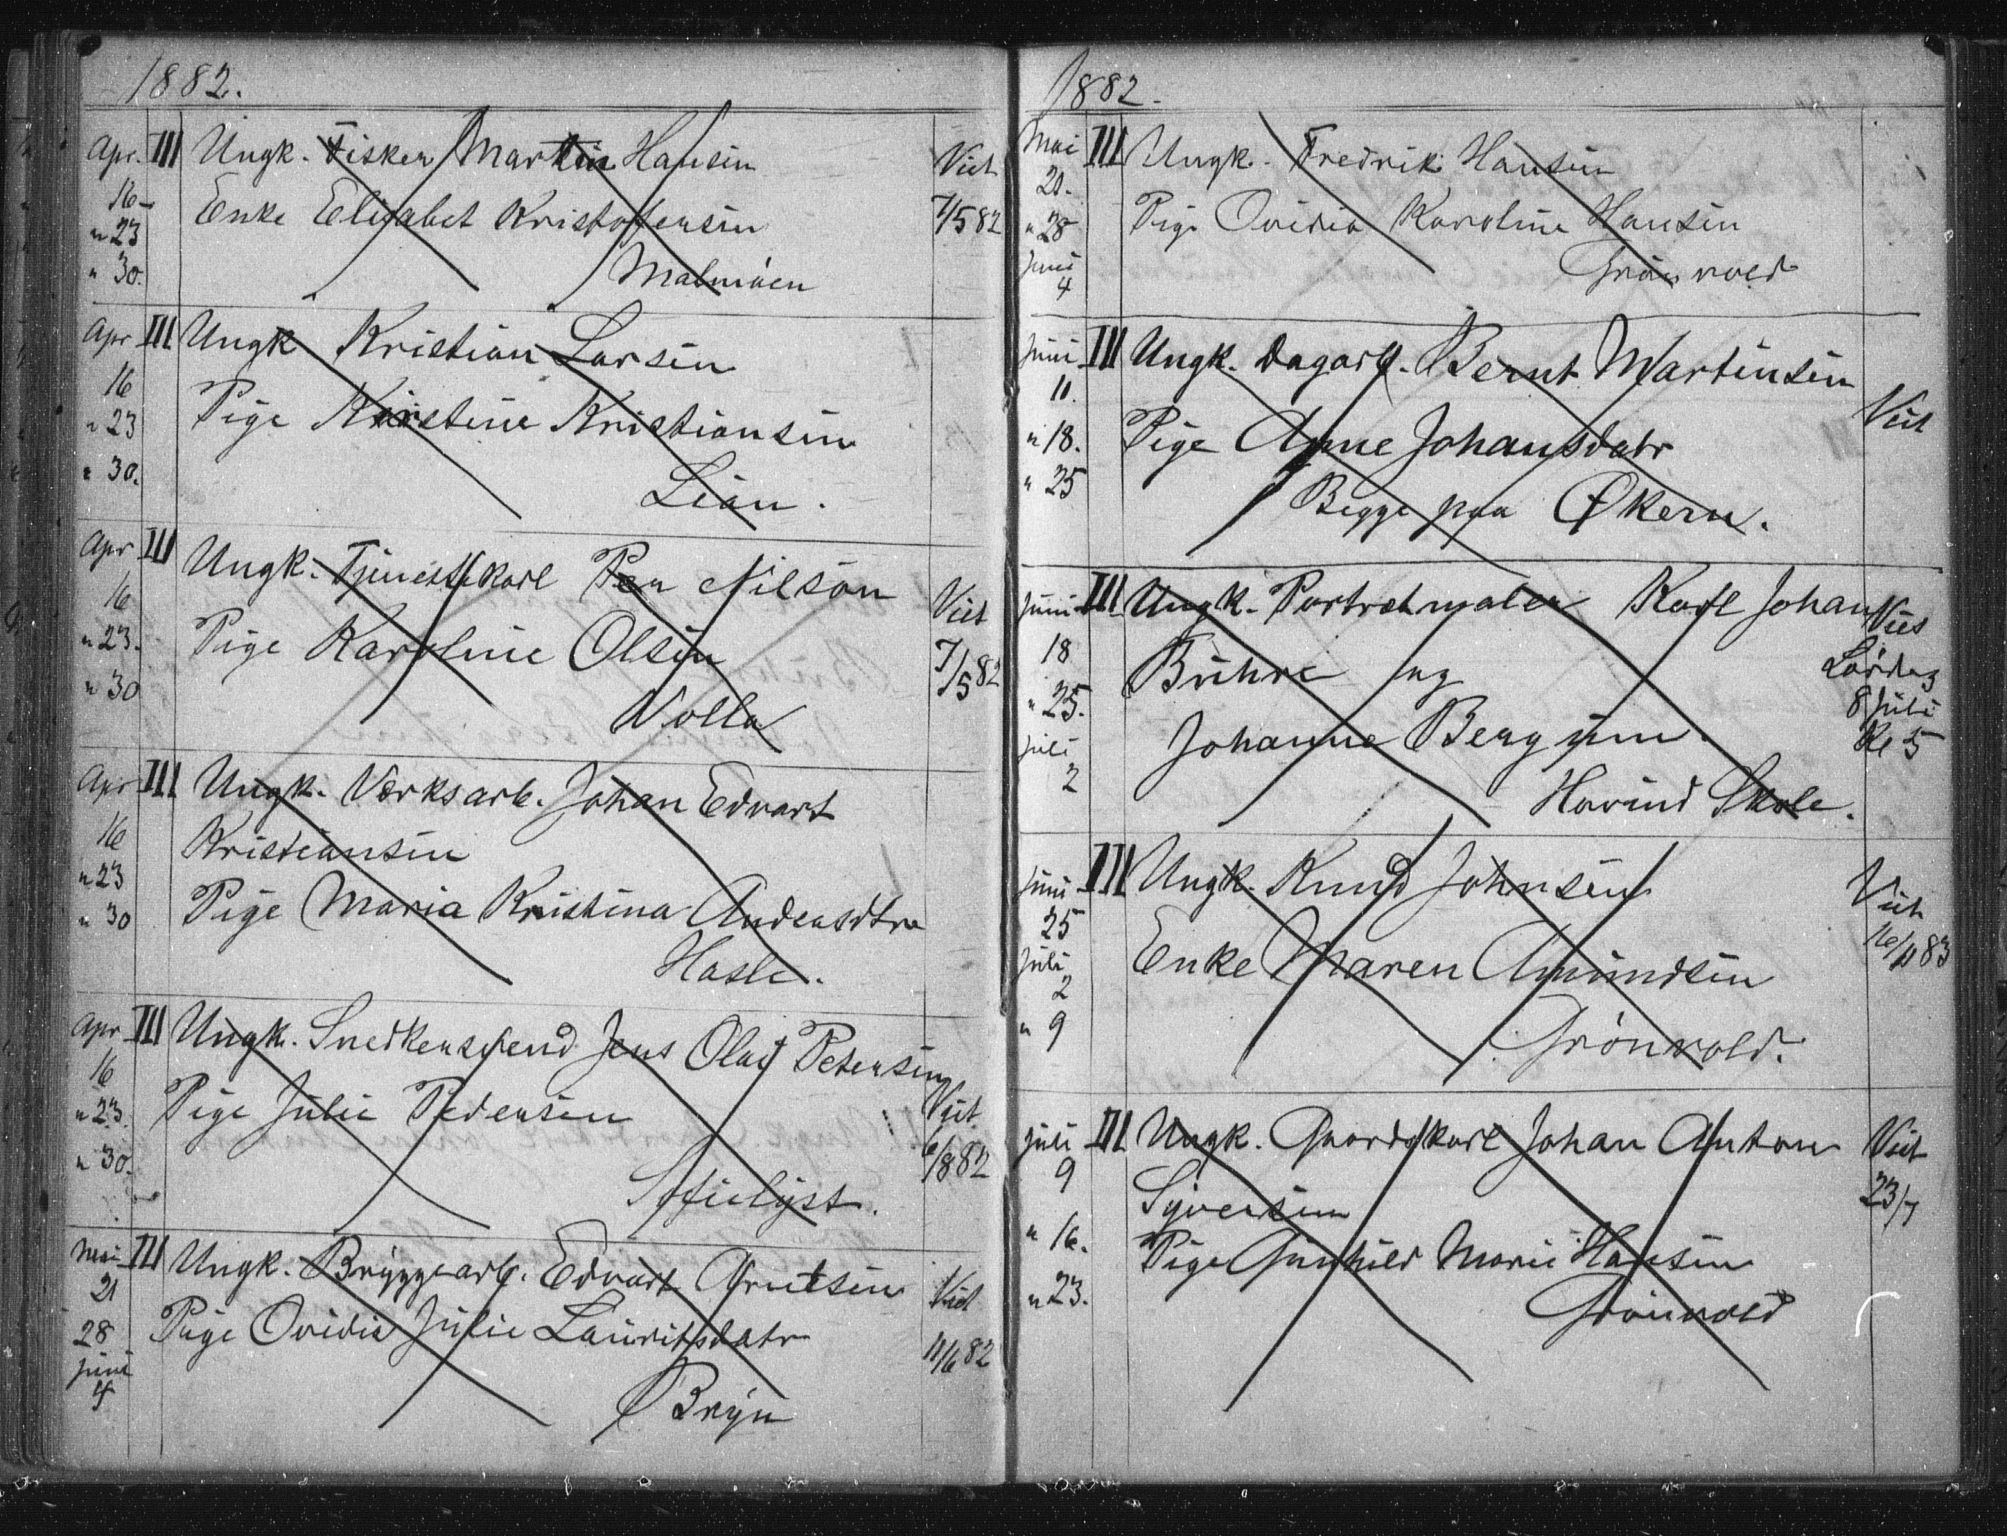 1882.
Apr. III Ungk. Fisker Martin Hansen Viet
16 Enke Elisabet Kristoffersen 7/5 82
" 23
" 30. Malmöen
Apr III Ungk Kristian Larsen
16
" 23 Pige Kirstine Kristiansen
" 30. Lian.
Apr III Ungk. Tjenestekarl Per Nilson Viet
16
" 23. Pige Karoline Olsen 7/5 82
" 30 Volla
Apr III Ungk. Værksarb. Johan Edvart
16 Kristiansen
" 23
" 30 Pige Maria Kristina Andersdtr
Hasle.
Apr III Ungk. Snedkersvend Jens Olaf Petersen
16
" 23. Pige Julie Pedersen Vjet
" 30. 6/8 82
Sofielyst.
Mai III Ungk. Bryggearb. Edvart Arntsen Viet
21
28 Pige Ovidia Julie Lauritsdatr 11/6 82
Juni
4 Bryn
1882.
Mai III Ungk. Fredrik Hansen
21.
" 28 Pige Ovidia Karoline Hansen
Juni Grönvold
4
Juni III Ungk. Dagarb. Bernt Martinsen
11. Viet
" 18. Pige Anne Johansdatr
" 25 Begge paa Økern.
Juni III Ungk. Portrætmaler Karl Johan Vies
18 Lördag
Buhre og 8 Juli
" 25. Kl 5
Juli Johanne Bergum.
2 Hovind Skole.
Juni III Ungk. Knud Johnsen Viet
25 16/11 83
Juli Enke Maren Amundsen
2
" 9 Grönvold.
Juli III Ungk. Gaardskarl Johan Anton Viet
9 Syversen 23/7
" 16. Pige Gunhild Marie Hansen
" 23. Grönvold